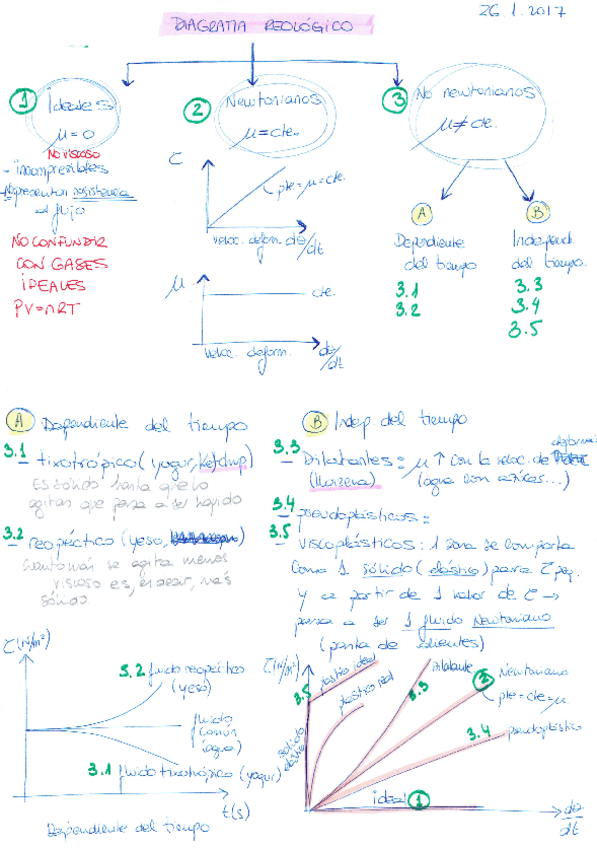 26.1.2017
DIAGRAMA REOLÓGICO
1 Ideales
μ = 0
NO VISCOSO
- incompresibles
- Representan resistencia
al flujo
NO CONFUNDIR
CON GASES
IDEALES
PV=nRT
2 Newtonianos
μ = cte.
τ
pte = μ = cte.
veloc. deform. dθ/dt
μ
cte.
veloc. deform. dθ/dt
3 No newtonianos
μ ≠ cte.
A
Dependiente
del tiempo
3.1
3.2
B
Independ.
del tiempo.
3.3
3.4
3.5
A Dependiente del tiempo
3.1 - tixotrópico (yogur, Ketchup)
Es sólido hasta que lo
agitan que pasa a ser líquido
3.2 - reopéctico (yeso,
Cuanto más se agita menos
viscoso es, es decir, más
sólido.
B Indep del tiempo
3.3 - Dilatantes = μ ↑ con la veloc. de deformac.
(Maizena) (agua con azúcar...)
3.4 - pseudoplásticos =
3.5 - viscoplásticos: 1 zona se comporta
como 1 sólido (elástico) para τ peq.
y a partir de 1 valor de τ →
pasa a ser 1 fluido Newtoniano
(pasta de dientes)
τ (N/m²)
3.2 fluido reopéctico
(yeso)
fluido
común
(agua)
3.1 fluido tixotrópico (yogur)
t(s)
Dependiente del tiempo
τ (N/m²)
3.5 plástico ideal
plástico real
sólido
elástico
dilatante
3.3
2 Newtoniano
pte = cte = μ
3.4 pseudoplástico
ideal 1
dθ/dt